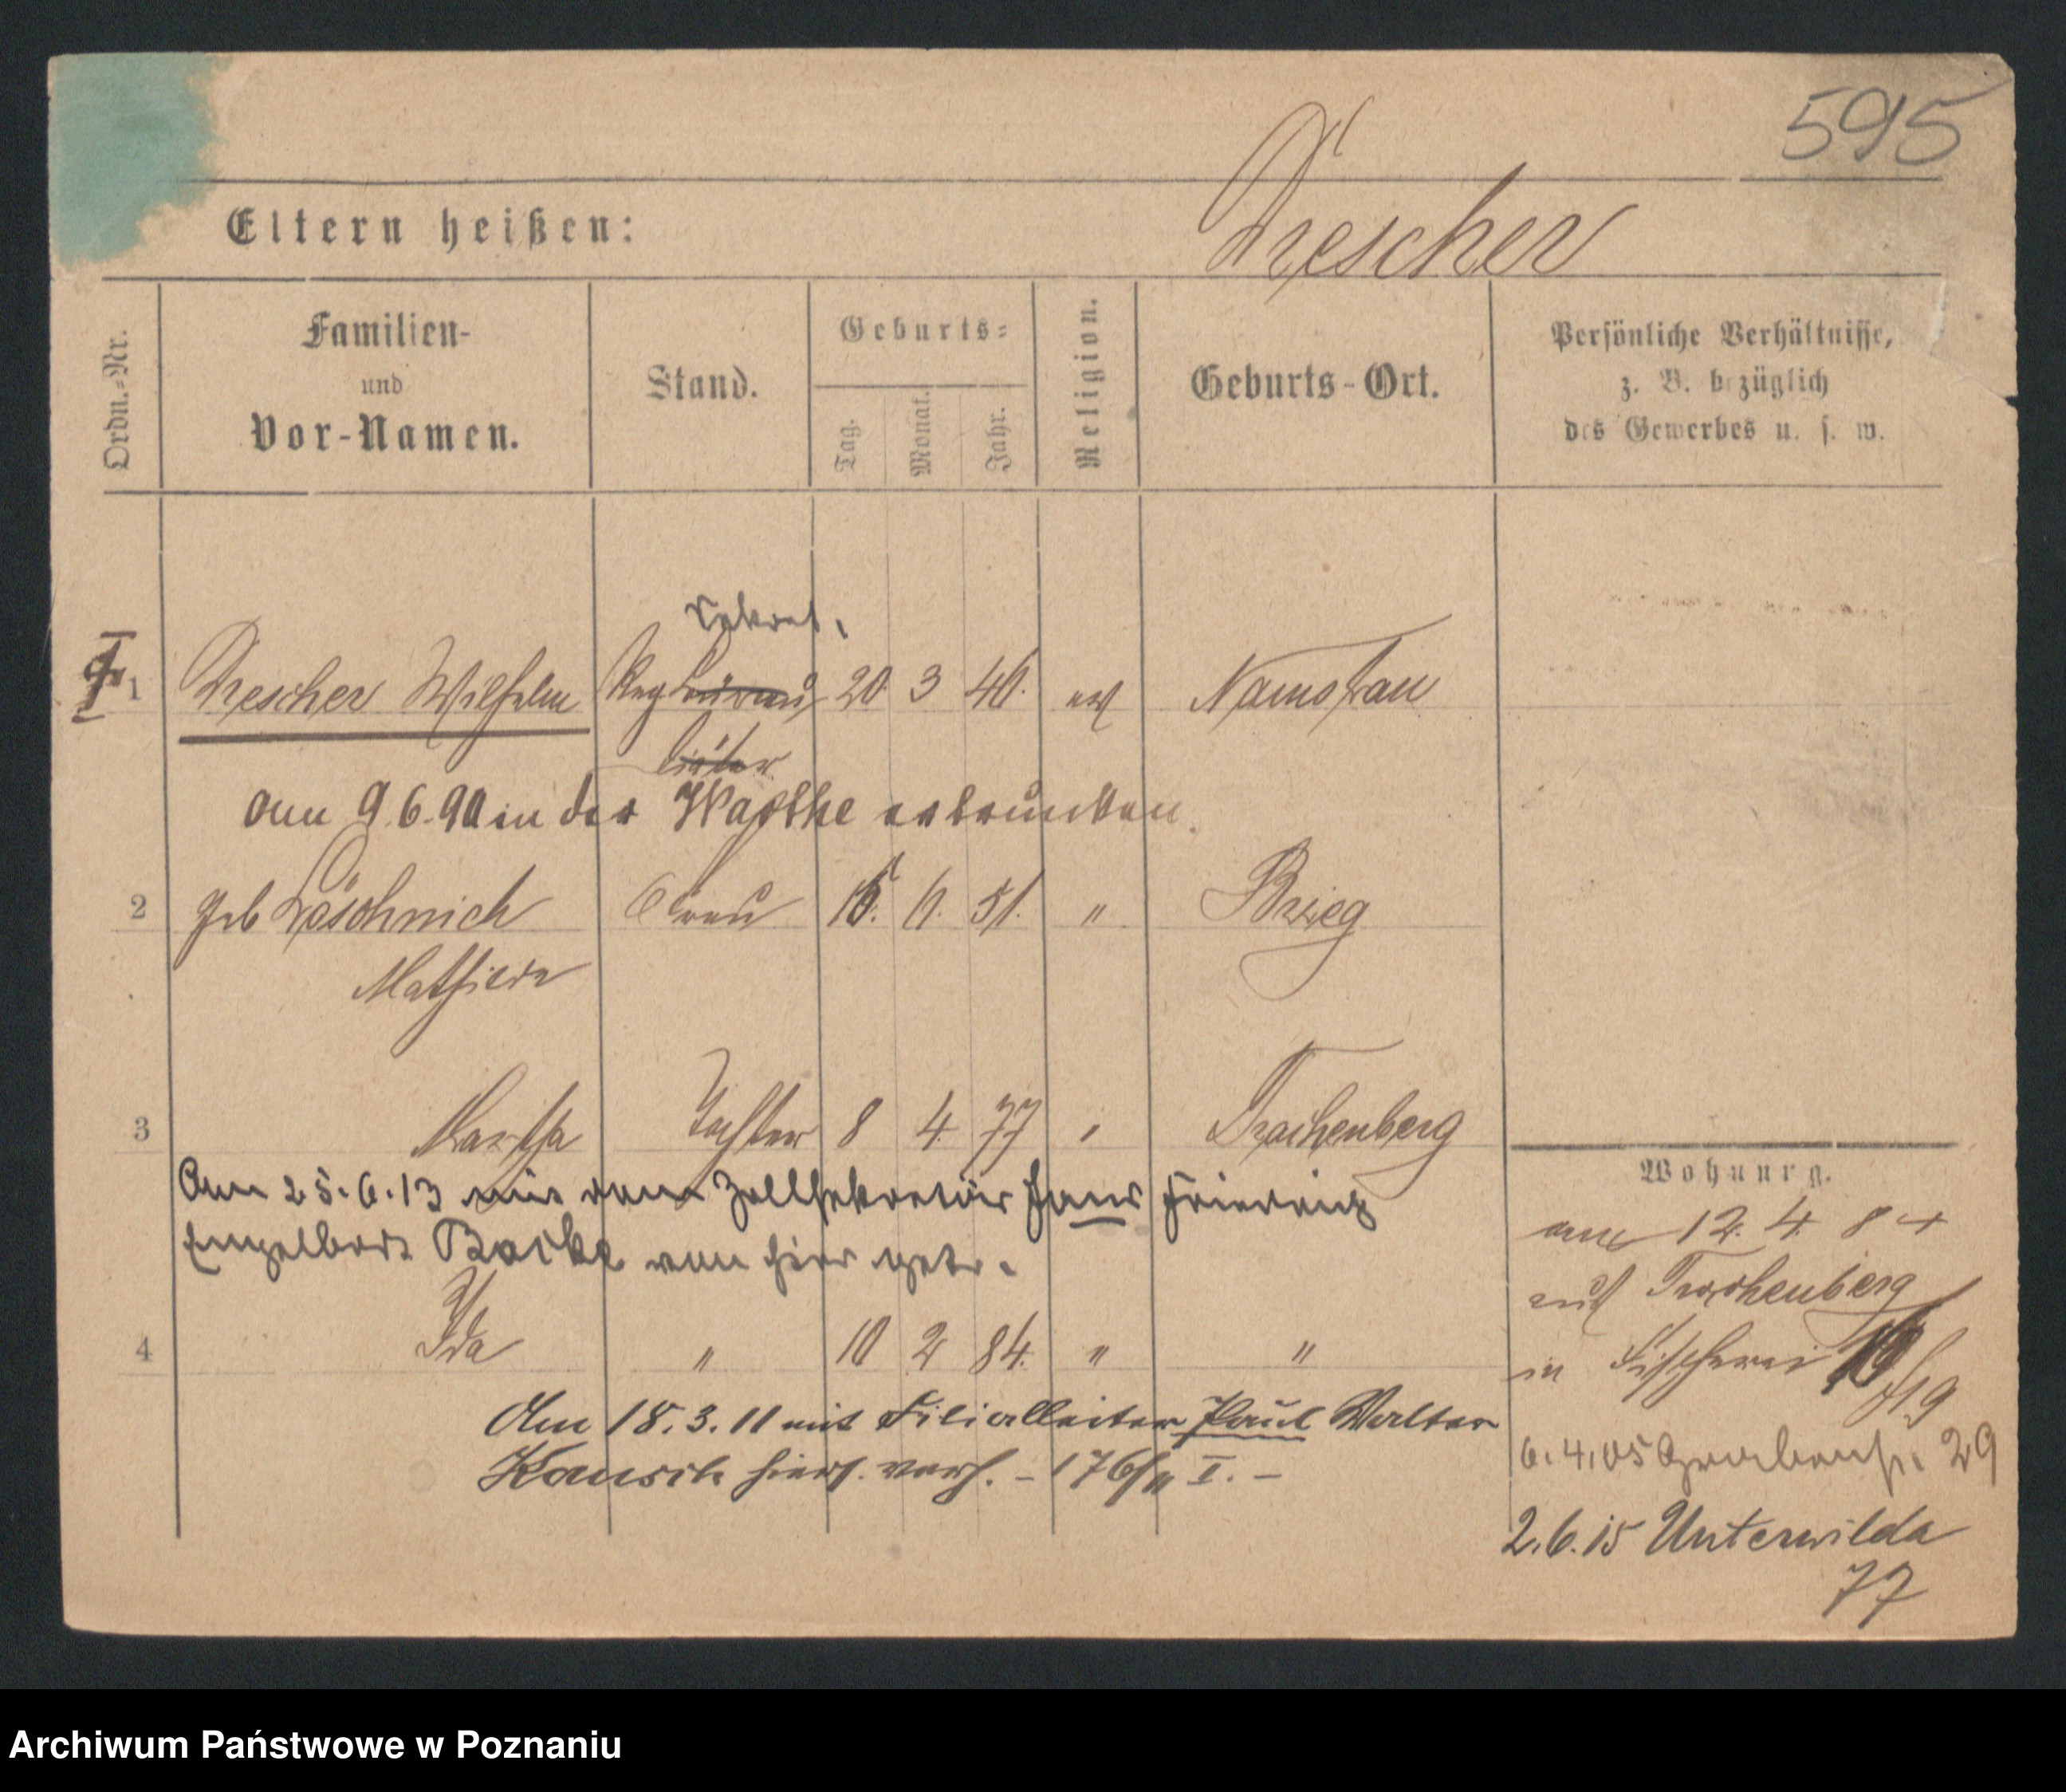 595
Eltern heißen: Drescher
Ordn.-Nr.
Familien-
und
Vor-Namen.
Stand.
Geburts-
Tag.
Monat.
Jahr.
Religion.
Geburts-Ort.
Persönliche Verhältnisse,
z. B. bezüglich
des Gewerbes u. s. w.
Sekret.
1 Drescher Wilhelm Reg Bureau 20 3 46. ev Namslau
am 9.6.90 in der Warthe ertrunken.
2 geb Löschnich Frau 15. 6. 51. " Brieg
Mathilde
3 Martha Tochter 8 4 77 " Trachenberg
Am 25.6.13 mit dem Zollsekretär Hans Friedrich
Engelbert Backe von hier getr.
4 Ida " 10 2 84. " "
Am 18.3.11 mit Filialleiter Paul Walter
hiers. verh. - 176/11 I. -
Wohnung.
am 12. 4. 84
aus Trachenberg
in Fischerei
19
6.4.05 Grabenstr. 29
2.6.15 Unterwilda
77
Archiwum Państwowe w Poznaniu